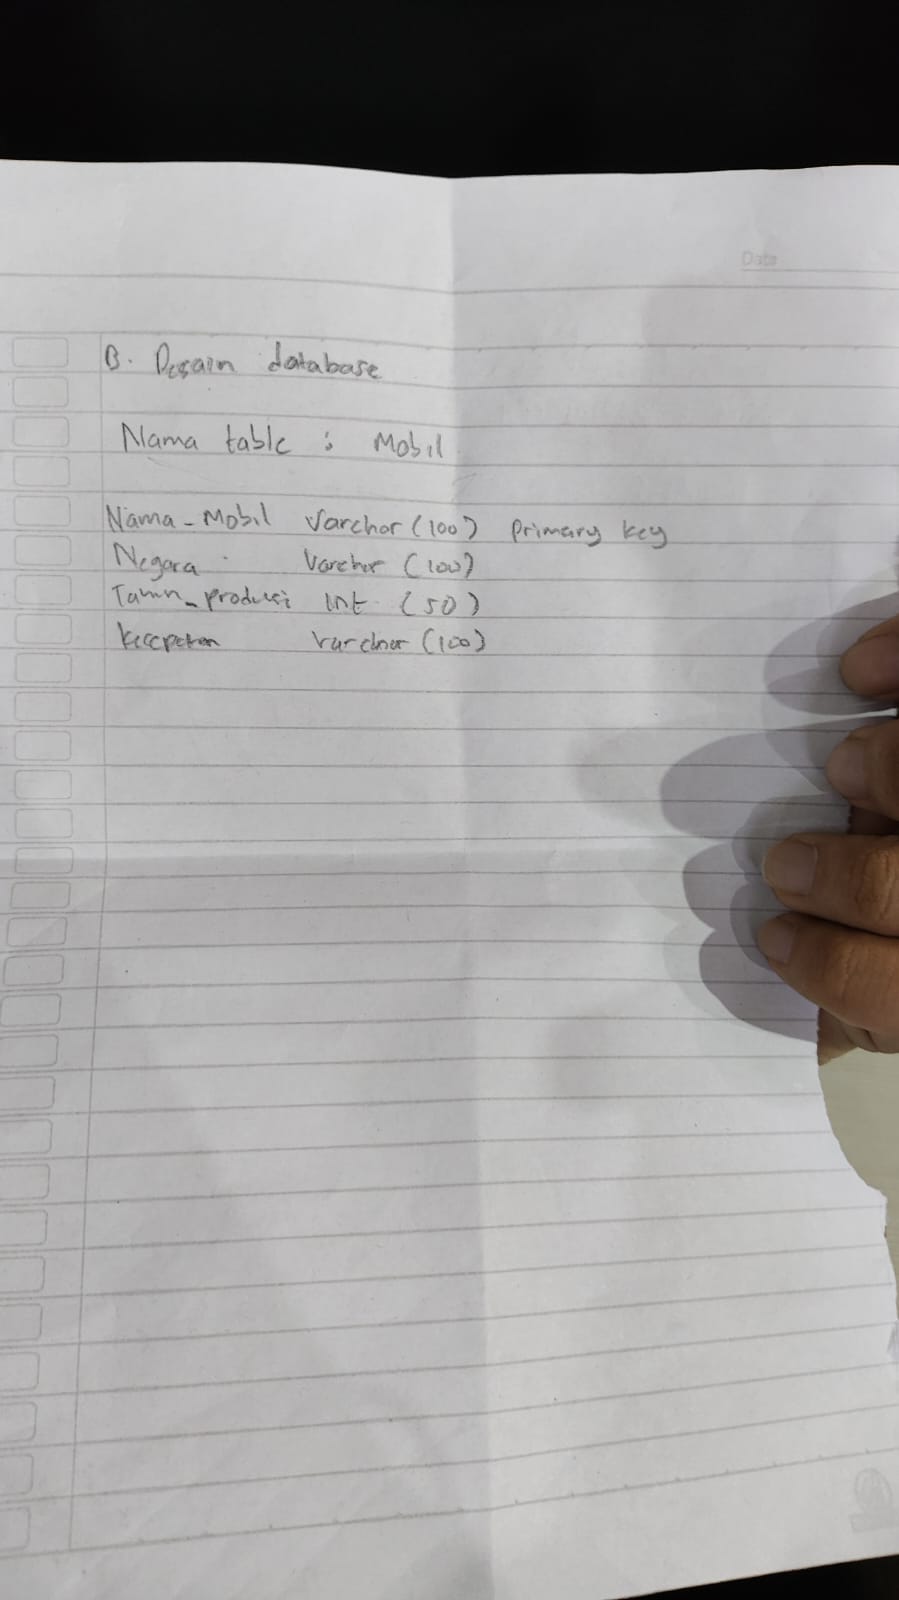 Date
B. Desain database
Nama table : Mobil
Nama_Mobil Varchar (100) Primary key
Negara Varchar (100)
Tahun_produksi int (50)
kecepatan varchar (100)